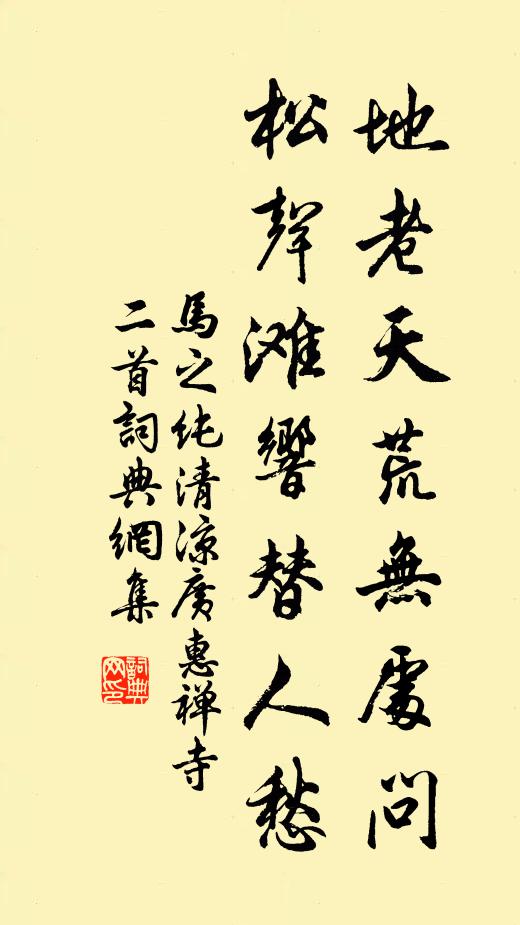 地老天荒無處問
松聲滩響替人愁
馬之纯清涼廣惠禅寺
二首詞典網集
詞典网印